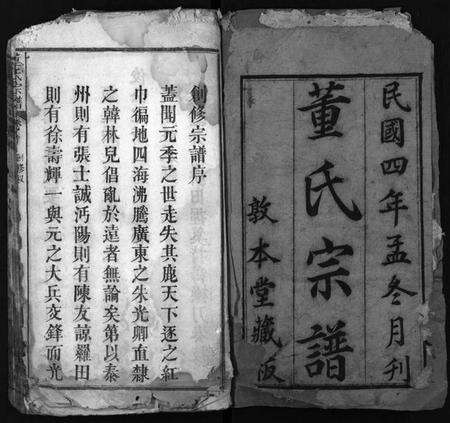 民國四年孟冬月刊
董氏宗譜
敦本堂藏版
創修宗譜序
蓋聞元季之世走失其鹿天下逐之紅
巾徧地四海沸騰廣東之朱光卿直隸
之韓林兒倡亂於遠者無論矣第以泰
州則有張士誠沔陽則有陳友諒羅田
則有徐壽輝一與元之大兵交鋒而光